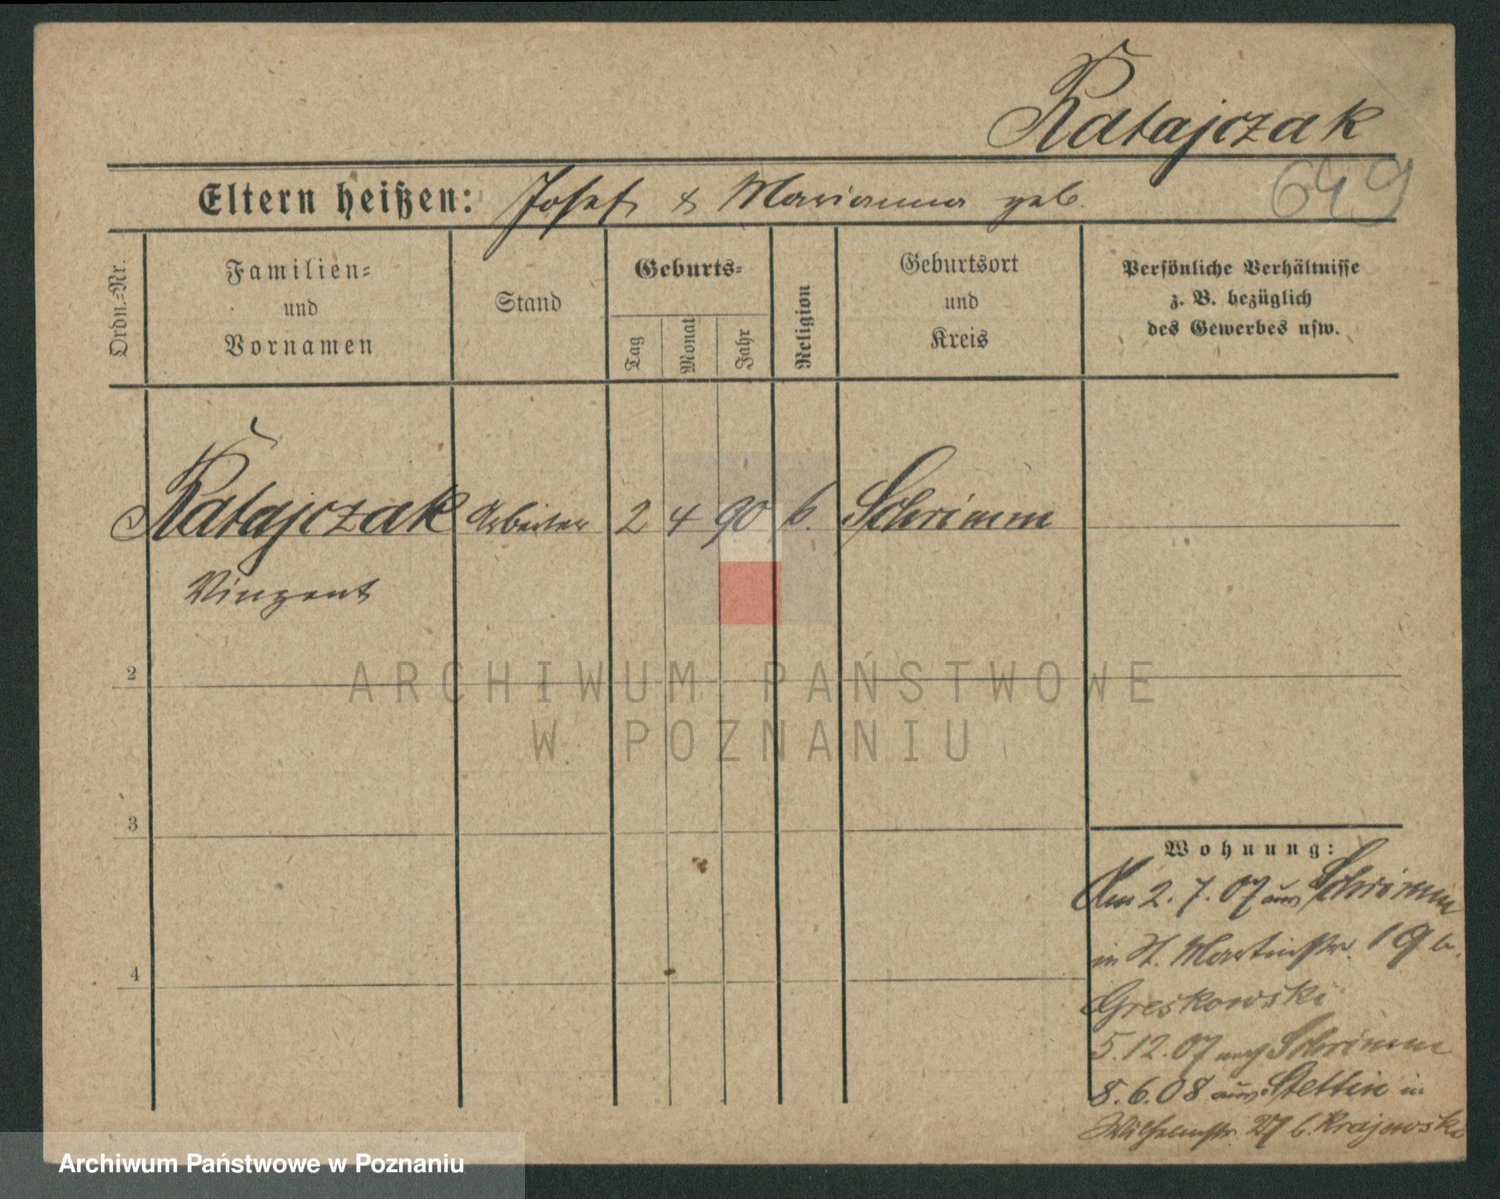 Ratajczak
649
Eltern heißen: Josef & Marianna geb.
Ordn.-Nr.
Familien-
und
Vornamen
Stand
Geburts-
Tag
Monat
Jahr
Religion
Geburtsort
und
Kreis
Persönliche Verhältnisse
z. B. bezüglich
des Gewerbes usw.
Ratajczak Arbeiter 2 4 90 k. Schrimm
Vinzent
2
3
4
ARCHIWUM PAŃSTWOWE
W POZNANIU
Wohnung:
Am 2. 7. 07 aus Schrimm
in St. Martinstr. 19 b.
Greskowski
5. 12. 07 nach Schrimm
8. 6. 08 aus Stettin in
Wilhelmstr. 27 b. Krajewski
Archiwum Państwowe w Poznaniu